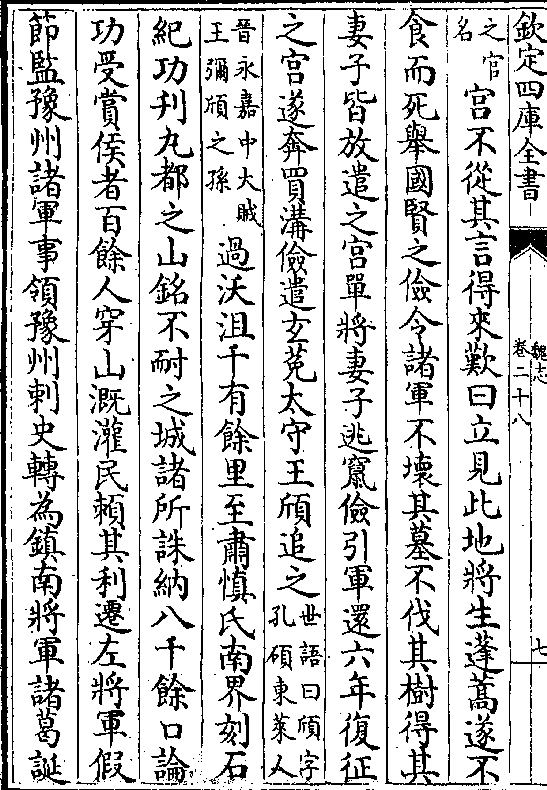 欽定四庫全書
魏志
卷二十八
七
之官
名
宫不從其言得來歎曰立見此地將生蓬蒿遂不
食而死舉國賢之儉令諸軍不壞其墓不伐其樹得其
妻子皆放遣之宫單將妻子逃竄儉引軍還六年復征
之宫遂奔買溝儉遣玄菟太守王頎追之
世語曰頎字
孔碩東萊人
晉永嘉中大賊
王彌頎之孫
過沃沮千有餘里至肅慎氏南界刻石
紀功刋丸都之山銘不耐之城諸所誅納八千餘口論
功受賞侯者百餘人穿山溉灌民頼其利遷左將軍假
節監豫州諸軍事領豫州刺史轉為鎮南將軍諸葛誕